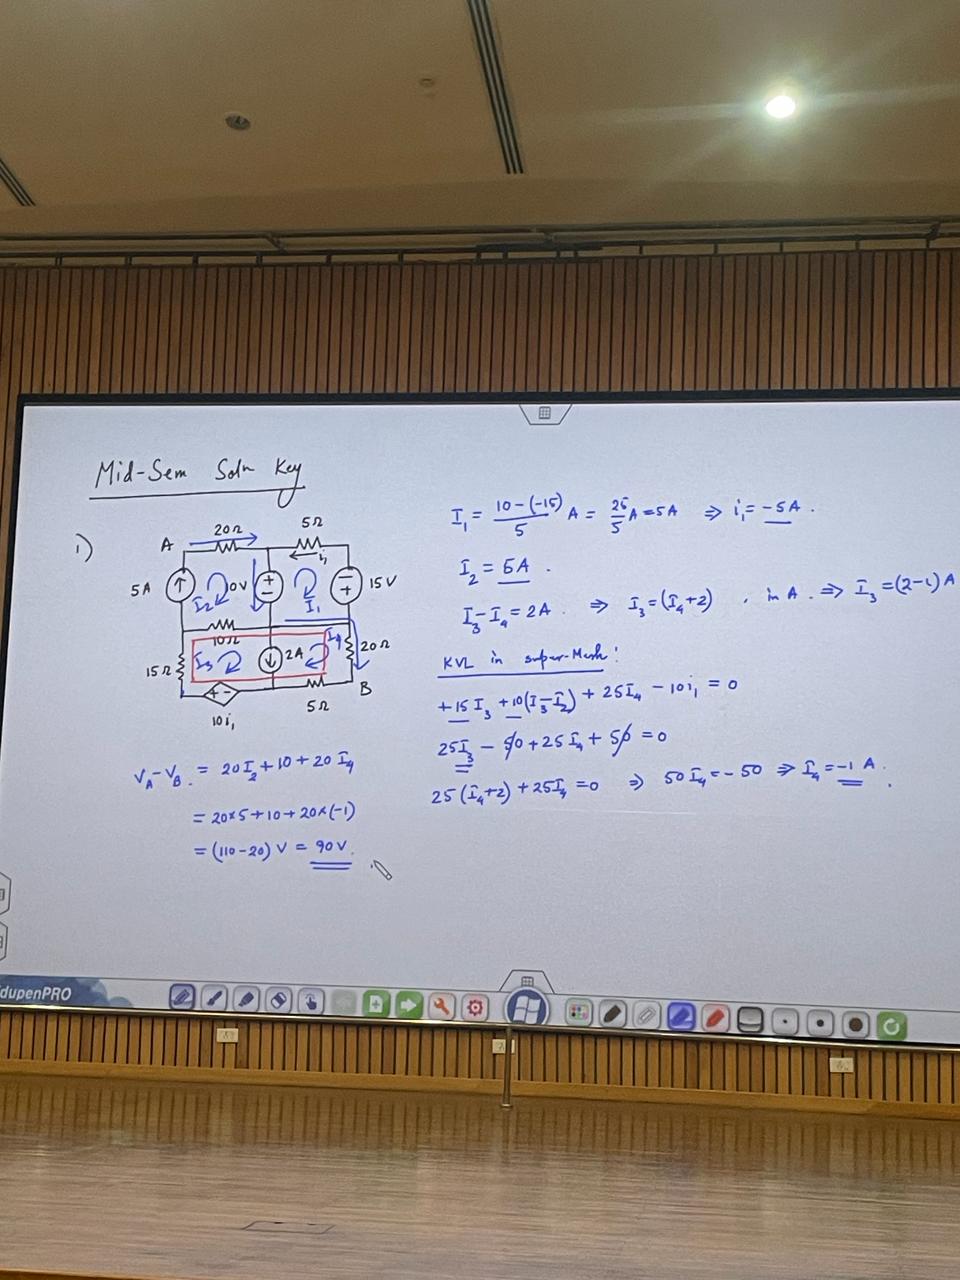 Mid-Sem Soln Key
1)
A
20Ω
5Ω
i₁
5A
I₂
0V
I₁
15V
10Ω
I₄
15Ω
I₃
2A
20Ω
10i₁
5Ω
B
V_A - V_B = 20I₂+10+20I₄
= 20×5+10+20×(-1)
= (110-20) V = 90V.
I₁ = 10-(-15)/5 A = 25/5 A = 5A ⇒ i₁ = -5A.
I₂ = 5A.
I₃-I₄ = 2A. ⇒ I₃ = (I₄+2), in A. ⇒ I₃ = (2-1) A
KVL in super-Mesh:
+15I₃ +10(I₃-I₂) + 25I₄ - 10i₁ = 0
25I₃ - 50 + 25I₄ + 50 = 0
25(I₄+2) + 25I₄ = 0 ⇒ 50I₄ = -50 ⇒ I₄ = -1 A.
dupenPRO